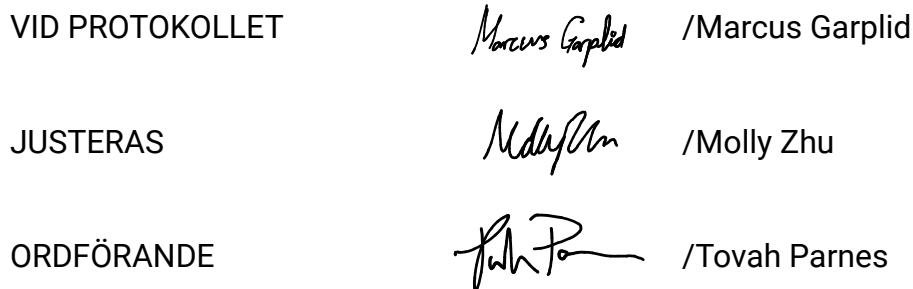 VID PROTOKOLLET Marcus Garplid /Marcus Garplid
JUSTERAS /Molly Zhu
ORDFÖRANDE /Tovah Parnes